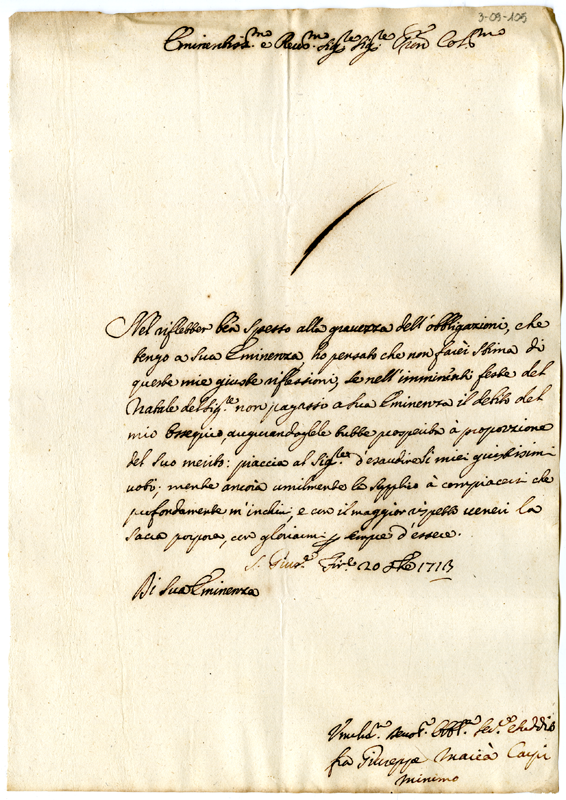 3-09-105
Eminentiss.mo e Reu.mo Sig.re Sig.re Col.mo
Nel riflesser ben spesso alla grauezza dell'obbligazioni, che
tengo a Sua Eminenza, ho pensato che non farei stima di
queste mie giuste riflessioni, se nell'imminenti feste del
Natale del Sig.re non pagasso a Sua Eminenza il debito del
mio ossequio augurandoglele tutte prosperità à proporzione
del suo merito: piaccia al Sig.re d'esaudire li miei giustissimi
uoti. mentre ancora umilmente la supplico à compiacersi che
profondamente m'inchini, e con il maggior rispetto ueneri la
sacra porpora, con gloriarmi sempre d'essere.
S. Gius.e 20 1713
Di Sua Eminenza
Umiliss.mo deuot.mo Obbl.mo
fra Giuseppe Maria Carpi
minimo